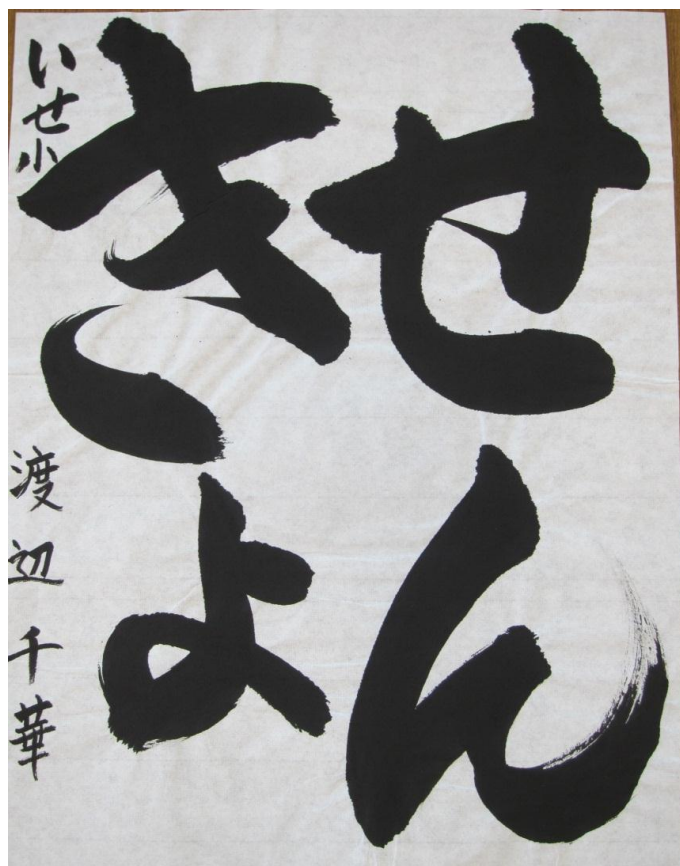 せん
きよ
いせ小
渡辺千華